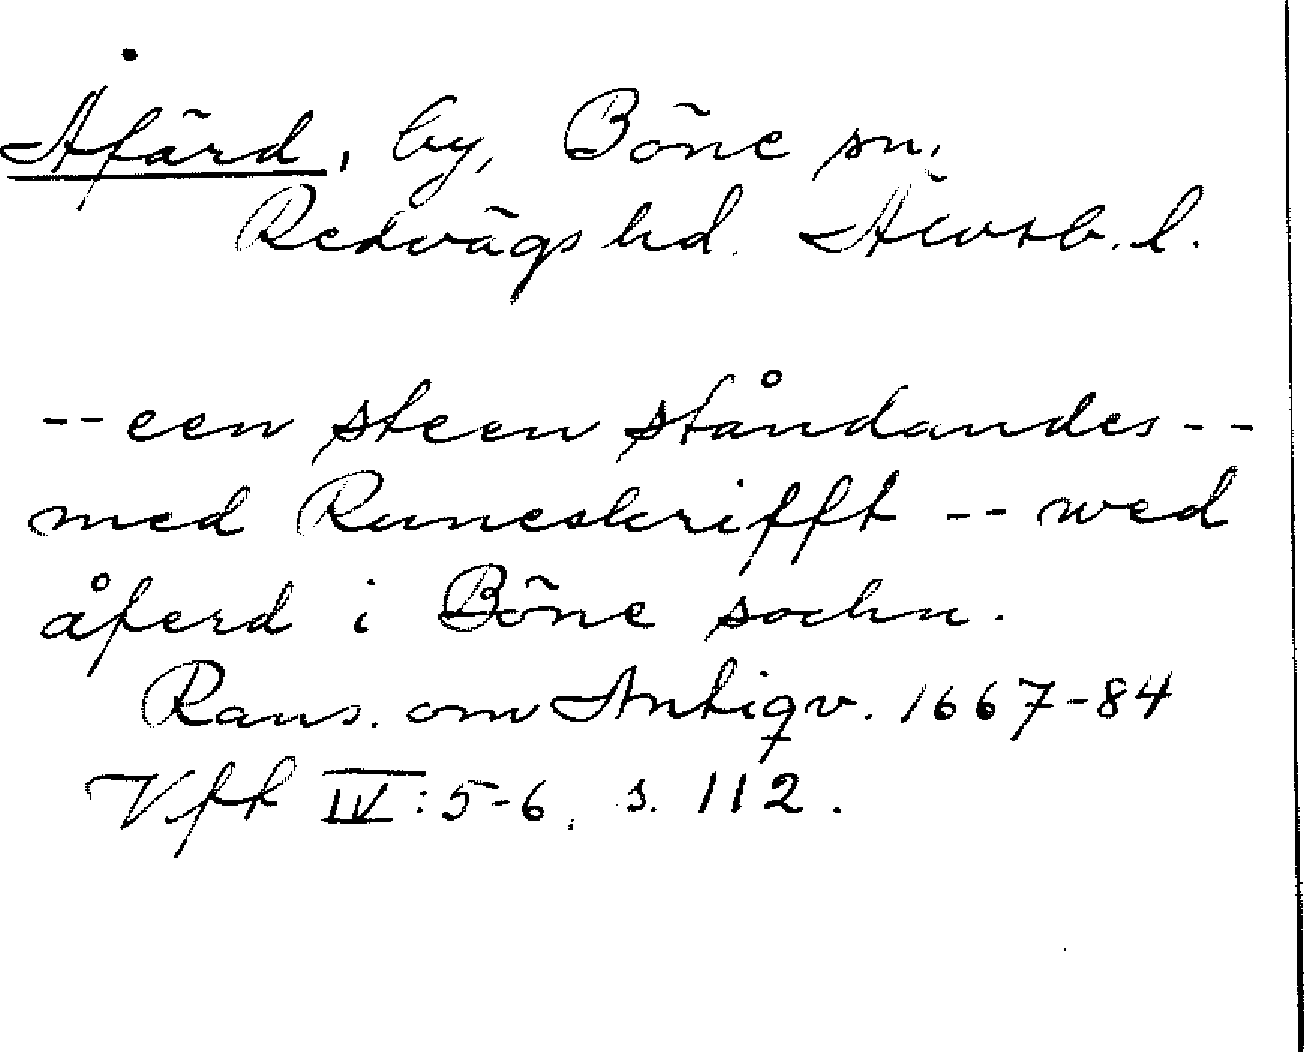 Åfärd, by, Böne sn,
Redvägs hd. Älvsb. l.
-- een steen ståndandes --
med Runeskrifft -- wed
åferd i Böne sochn.
Rans. om Antiqv. 1667-84
Vft IV:5-6, s. 112.